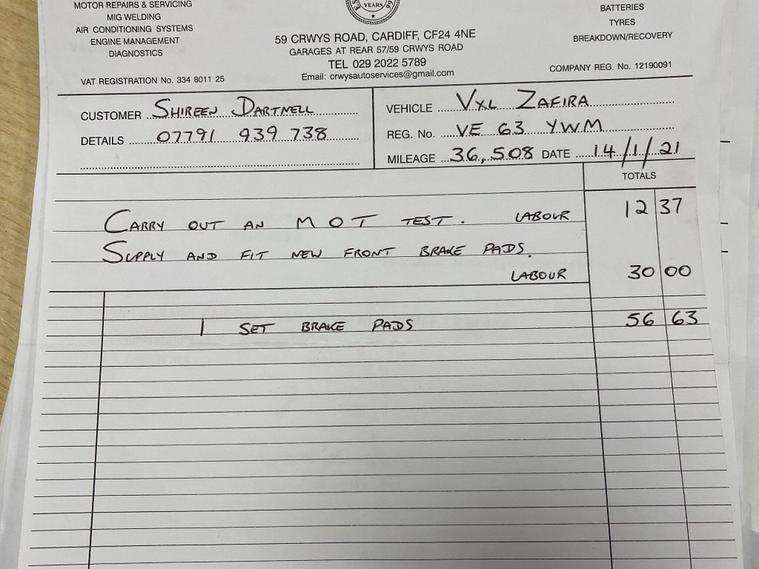 MOTOR REPAIRS & SERVICING
MIG WELDING
AIR CONDITIONING SYSTEMS
ENGINE MANAGEMENT
DIAGNOSTICS
VAT REGISTRATION No. 334 8011 25
YEARS
59 CRWYS ROAD, CARDIFF, CF24 4NE
GARAGES AT REAR 57/59 CRWYS ROAD
TEL 029 2022 5789
Email: crwysautoservices@gmail.com
BATTERIES
TYRES
BREAKDOWN/RECOVERY
COMPANY REG. No. 12190091
CUSTOMER SHIREEN DARTNELL
DETAILS 07791 939 738
VEHICLE VXL ZAFIRA
REG. No. VE 63 YWM
MILEAGE 36,508 DATE 14/1/21
TOTALS
CARRY OUT AN MOT TEST. LABOUR 12 37
SUPPLY AND FIT NEW FRONT BRAKE PADS.
LABOUR 30 00
1 SET BRAKE PADS 56 63